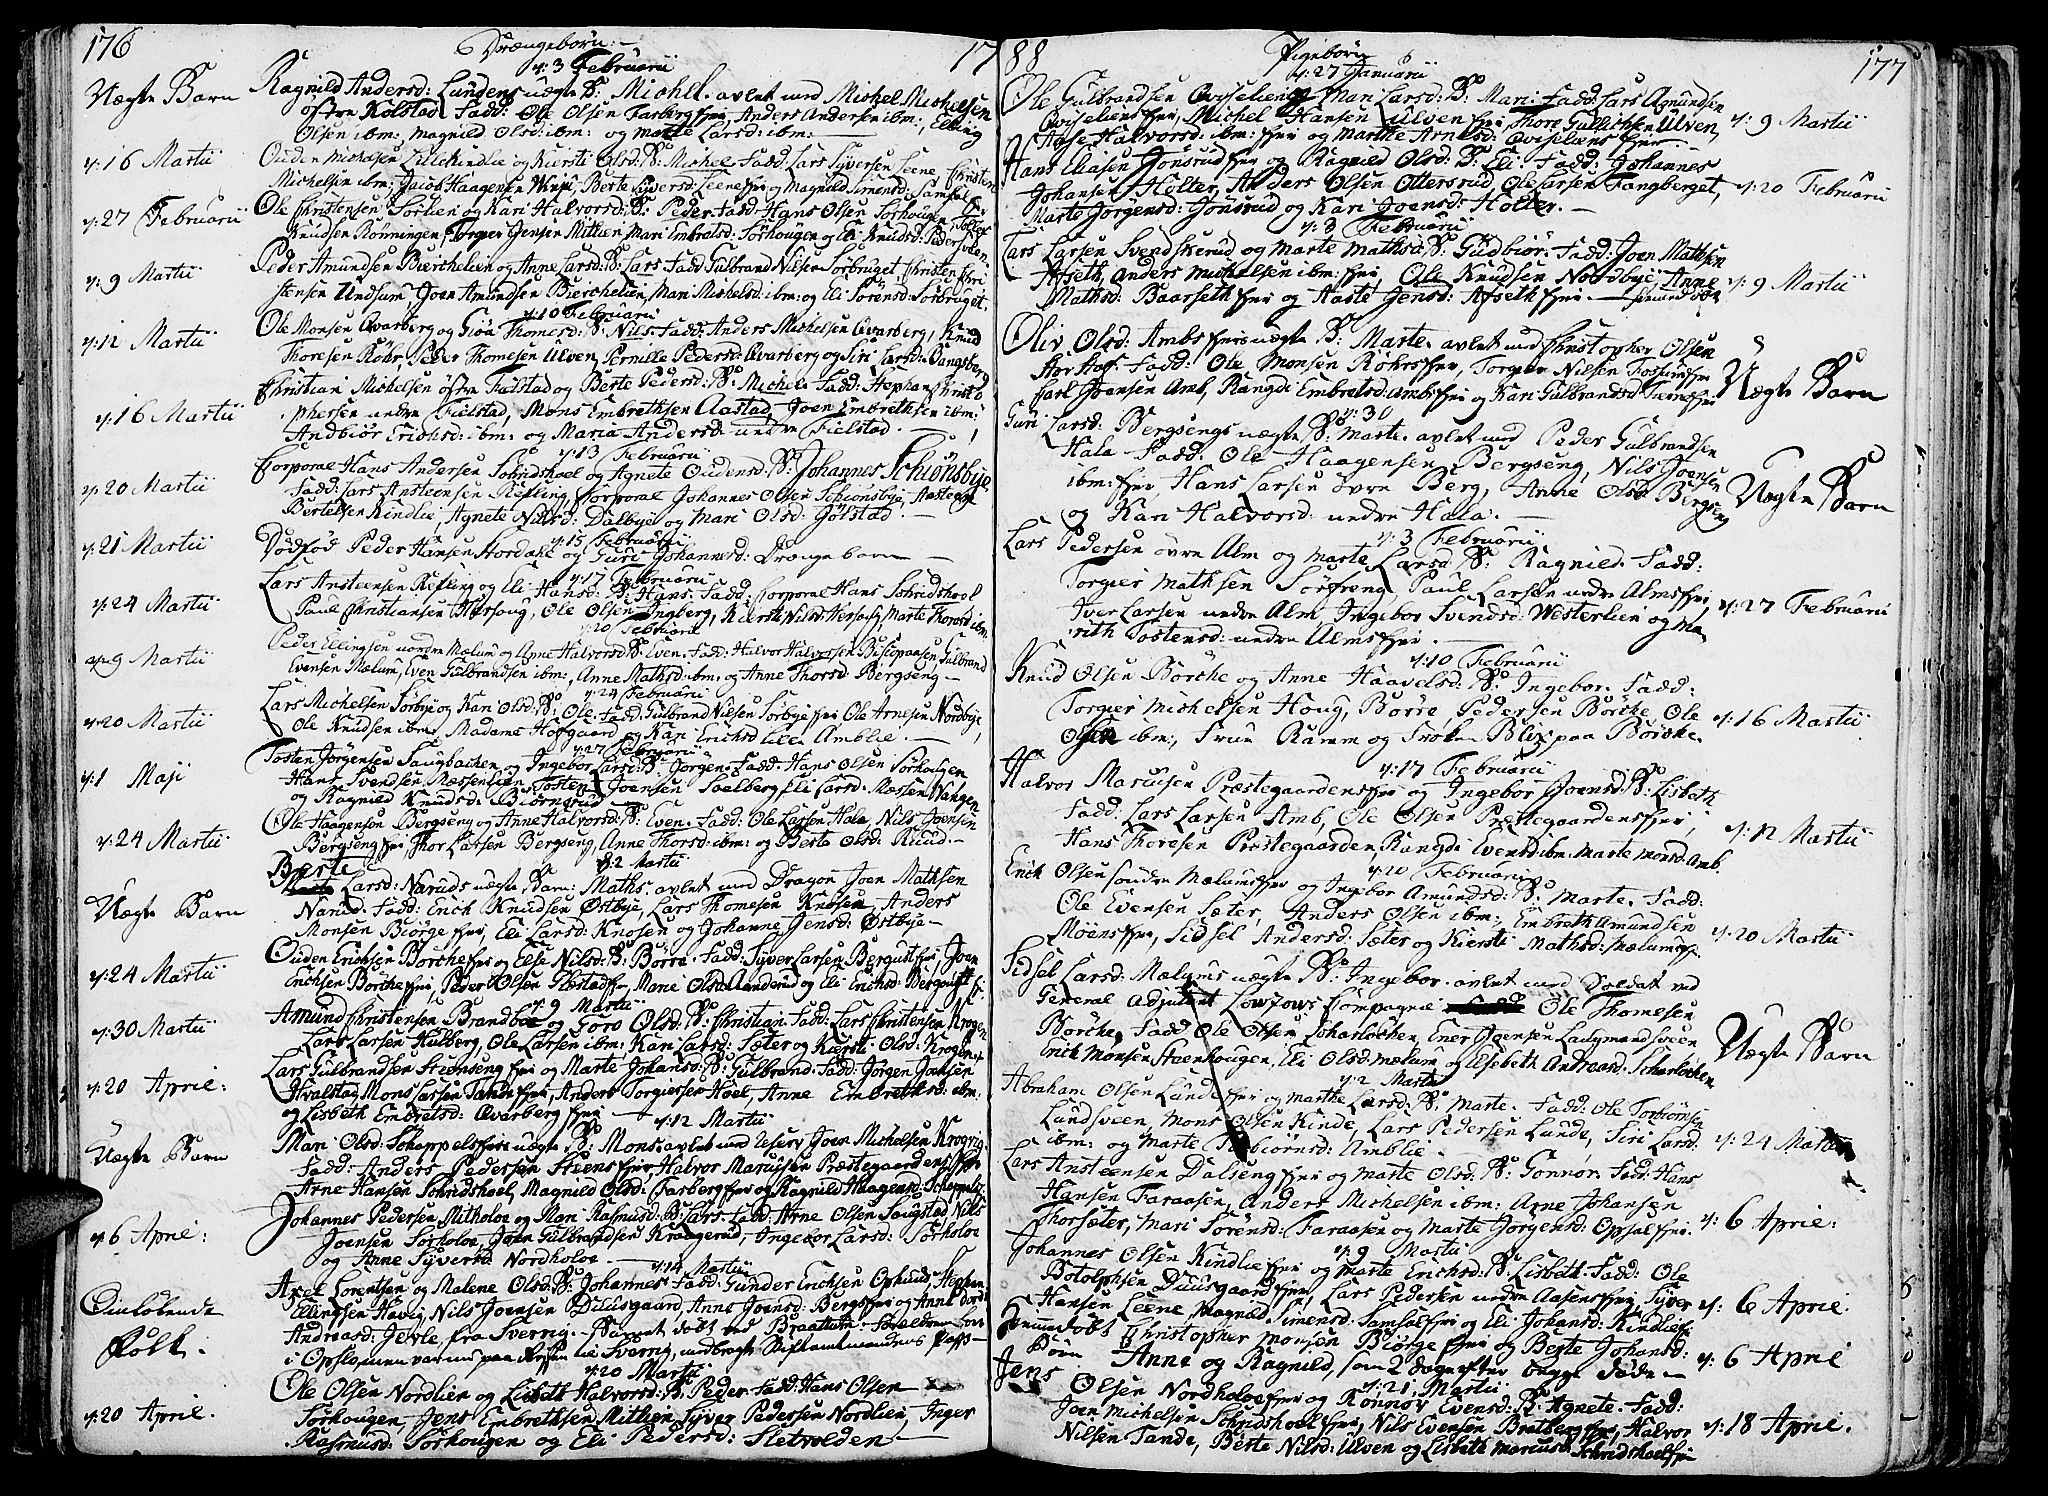 176
Drængebørn.
17
d: 3 Februarii
Uægte Barn
Ragnild Andersd: Lundens uægte B: Michel. avlet med Michel Michelsen
østre Kolstad Fadd: Ole Olsen Farberg Eri, Anders Andersen ibm:, Elling
Olsen ibm: Magnild Olsd: ibm: og Marte Larsd: ibm:
d: 16 Martii
Ouden Michelsen Lillekindlie og Kiersti Olsd: B: Michel Fadd: Lars Syversen Leene, Christen
Michelsen ibm: Jacob Haagensen, Berte Syversd: Leene Eri og Magnild Simensd: Samsal
d: 27 Februarii
Ole Christensen Sorlien og Kari Halvorsd: B: Peder Fadd: Hans Olsen Sørhougen,
Knudsen Rønningen, Torgier Jensen Mitlien Mari Embretsd: Sørhougen og Eli Knudsd:
d: 9 Martii
Peder Amundsen Bierchelien og Anne Larsd: B: Lars Fadd Gulbrand Nilsen Sørbruget, Christen Chri
stensen Undsum Joen Amundsen Bierchelien, Mari Michelsd: ibm: og Eli Sørensd: Sørbruget.
d: 10 Februarii
d: 12 Martii
Ole Monsen Qvarberg og Giøa Thomesd: B: Nils Fadd: Anders Michelsen Qvarberg, Knud
Thoresen Röhr, Peder Thomesen Ulven, Pernille Pedersd: Qvarberg og Siri Larsd: Bangsberg
d: 16 Martii
Christian Michelsen østre Fielstad og Berte Pedersd: B: Michel Fadd: Stephan Christo
phersen nedre Fielstad, Mons Embrethsen Aastad, Joen Embrethsen ibm:,
Andbiør Erichsd: ibm: og Maria Andersd: nedre Fielstad.
d: 13 Februarii
d: 20 Martii
Corporal Hans Andersen Schridshoel og Agnete Oudensd: B: Johannes Schionsbye
Fadd: Lars Ansteensen Refling, Corporal Johannes Olsen Schionsbye, Aasteen
Bertelsen Kindlie, Agnete Nilsd: Dalbye og Mari Olsd: Jølstad.
d: 15 Februarii
d: 21 Martii
Dødfød Peder Hansen Hordale og Guri Johannesd: Drængebarn
d: 17 Februarii
d: 24 Martii
Lars Ansteensen Refling og Eli Hansd: B: Hans: Fadd: Corporal Hans Schridshoel
Paul Christiansen Hersoug, Ole Olsen Ingberg, Kiersti Nilsd: Hersoug, Marte Thorsd: ibm:
d: 20 Februarii
d: 9 Martii
Peder Ellingsen nordre Mælum og Anne Halvorsd: B: Even. Fadd: Halvor Halvorsen Bisopaasen, Gulbrand
Evensen Mælum, Even Gulbrandsen ibm:, Anne Mathsd: ibm: og Anne Thorsd: Bergseng
d: 24 Februarii
d: 20 Martii
Lars Michelsen Sørbye og Kari Olsd: B: Ole. Fadd: Gulbrand Nilsen Sørbye Eri Ole Arnesen Nordbye,
Ole Knudsen ibm:, Madame Hofgaard og Kari Erichsd lille Amblie.
d: 27 Februarii
d: 1 Maji
Tosten Jørgensen Saugbachen og Ingebor Larsd: B: Jørgen. Fadd: Hans Olsen Sørhougen
Hans Svendsen Mæsenlien, Tosten Joensen Soelberg, Eli Larsd: Mæsen Wangen
og Ragnild Knudsd: Biørnsrud
d: 24 Martii
Ole Haagensen Bergseng og Anne Halvorsd: B: Even. Fadd: Ole Larsen Hala, Nils Joensen
Bergseng Eri, Thor Larsen Bergseng, Anne Thorsd: ibm: og Berte Olsd: Ruud.
d: 2 Martii
Uægte Barn
Berte Larsd: Naruds uægte Barn: Maths. avlet med Dragon Joen Mathsen
Narud. Fadd: Erich Knudsen Østbye, Lars Thomesen Knosen, Anders
Monsen Biørge Eri, Eli Larsd: Knosen og Johanne Jensd: Østbye
d: 24 Martii
Ouden Erichsen Børche Eri og Else Nilsd: B: Børre. Fadd: Syver Larsen Bergust Eri, Joen
Erichsen Børche Eri, Peder Olsen Glestad Eri, Marie Olsd: Landerud og Eli Erichsd: Bergust Eri
d: 9 Martii
d: 30 Martii
Amund Christensen Brandboe og Goro Olsd: B: Christian. Fadd: Lars Christensen Krogen,
Lars Larsen Kulberg, Ole Larsen ibm:, Kari Larsd: Sæter og Kiersti Olsd: Krogen
d: 20 April:
Lars Gulbrandsen Steenseng Eri og Marte Johansd: B: Gulbrand. Fadd: Jørgen Joensen
Hvalstad, Mons Larsen Tande Eri, Anders Torgiersen Hoel, Anne Embrethsd: ibm:
og Lisbeth Embretsd: Qvarberg Eri
d: 12 Martii
Uægte Barn
Mari Olsd: Schappels Eris uægte B: Mons avlet med Joen Michelsen Krogrig
Fadd: Anders Pedersen Steens Eri, Halvor Marcusen Præstegaardens Eri
Arne Hansen Schridshoel, Magnild Olsd: Farberg Eri og Ragnild Haagensd: Schappels
d: 6 April:
Johannes Pedersen Mitholoe og Mari Rasmusd: B: Lars. Fadd: Arne Olsen Saugstad, Nils
Joensen Sørholoe, Joen Gulbrandsen Kraagerud, Ingebor Larsd: Sørholoe
og Anne Syversd Nordholoe
d: 14 Martii
Omløbende
Folk.
Axel Lorentsen og Malene Olsd: B: Johannes Fadd: Gunder Erichsen Ophuus, Stephen
Ellingsen Havig, Nils Joensen Dilusgaard, Anne Joensd: Bergs Eri og Anne
Andreasd: Jevle fra Sverrig. Barnet døbt ved Braattum. Forældrene
i Opslomen var nu paa Reisen til Sverrig, medbragte Stiftamtmandens Pass
d: 20 Martii
d: 20 April.
Ole Olsen Nordlien og Lisbeth Halvorsd: B: Peder. Fadd: Hans Olsen
Sørhougen, Jens Embrethsen Mitlien, Syver Pedersen Nordlien, Inger
Rasmusd: Sørhougen og Eli Pedersd: Sletvolden
88
Pigebørn
177
d: 27 Januarii
d: 9 Martii
Ole Gulbrandsen Qviselien Eri Mari Larsd: B: Mari: Fadd: Lars Amundsen
Qviseliens Eri, Michel Hansen Ulven Eri, Thore Gullichsen Ulven,
Aase Halvorsd: ibm: Eri og Marthe Arnesd: Qviseliens Eri
d: 20 Februarii
Hans Eliasen Jønsrud Eri og Ragnild Olsd: B: Eli: Fadd: Johannes
Johansen Holter, Anders Olsen Ottersrud, Ole Larsen Fangberget,
Marte Jørgensd: Jønsrud og Kari Joensd: Holter.
d: 3 Februarii
d: 9 Martii
Lars Larsen Svendskerud og Marte Mathsd: B: Gudbiør. Fadd: Joen Mathsen
Afseth, Anders Michelsen ibm: Eri, Ole Knudsen Nordbye, Anne
Mathsd: Baarseth Eri og Aaste Jensd: Afseth Eri
Uægte Barn
Oliv Olsd: Ambs Eris uægte B: Marte. avlet med Christopher Olsen
Stor Hof. Fadd: Ole Monsen Röhrs Eri, Torgier Nilsen Fossum Eri
Carl Joensen Amb, Rangde Embretsd: Ambs Eri og Kari Gulbrandsd Eri
d: 30
Uægte Barn
Guri Larsd: Bergsengs uægte B: Marte. avlet med Peder Gulbrandsen
Hala Fadd: Ole Haagensen Bergseng, Nils Joensen
ibm: Eri, Hans Larsen øvre Berg, Anne Olsd Bergseng
og Kari Halvorsd: nedre Hala.
d: 3 Februarii
d: 27 Februarii
Lars Pedersen øvre Alm og Marte Larsd: B: Ragnild. Fadd:
Torgier Mathsen Sørfreng, Paul Larsen nedre Alms Eri,
Iver Larsen nedre Alm, Ingebor Svendsd: Westerlien og Ma
rith Tostensd: nedre Alms Eri.
d: 10 Februarii
d: 16 Martii
Knud Olsen Børche og Anne Haavelsd: B: Ingebor. Fadd:
Torgier Michelsen Houg, Børre Pedersen Børche, Ole
Olsen ibm:, Frue Ramm og Frøken Blix paa Børche.
d: 17 Februarii
d: 12 Martii
Halvor Marcusen Præstegaardens Eri og Ingebor Joensd: B: Lisbeth
Fadd: Lars Larsen Amb, Ole Olsen Præstegaardens Eri,
Hans Thoresen Præstegaarden, Rangde Evensd: ibm: Marte Monsd: Amb.
d: 20 Februarii
d: 20 Martii
Erich Olsen søndre Mælums Eri og Ingebor Amundsd: B: Marte. Fadd:
Ole Evensen Sæter, Anders Olsen ibm:, Embreth Amundsen
Moens Eri, Sidsel Andersd: Sæter og Kiersti Mathsd: Mælums Eri
Uægte Barn
Sidsel Larsd: Mælums uægte B: Ingebor. avlet med Soldat ved
General Adjutant Lowzows Compagnie Ole Thomesen
Børche. Fadd Ole Olsen Scharlochen, Ener Joensen Ladgmandsveen
Erich Monsen Steenhougen, Eli Olsd: Mælum, og Elsebeth Andreasd. Scharlochen
d: 2 Martii
d: 24 Martii
Abraham Olsen Lunde Eri og Marthe Larsd: B: Marte. Fadd: Ole Torbiønsen
Lundsveen, Mons Olsen Kinde, Lars Pedersen Lunde, Siri Larsd:
ibm: og Marte Torbiørnsd: Amblie
d: 6 April:
Lars Ansteensen Dalseng Eri og Marte Olsd: B: Gonnor. Fadd: Hans
Hansen Faraasen, Anders Michelsen ibm: Arne Johansen
Thorsæter, Mari Sørensd: Faraasen og Marte Jørgensd: Opsal Eri.
d: 9 Martii
d: 6 April.
Johannes Olsen Kindlie Eri og Marte Erichsd: B: Lisbeth. Fadd: Ole
Botolphsen Duusgaard Eri, Lars Pedersen nedre Aasens Eri, Syver
Hansen Leene, Magnild Simensd: Samsal Eri og Eli Johansd: Kindlie Eri
d: 6 April
Hiemmedøbt Christopher Monsen Biørge Eri og Berte Johansd:
Børn Anne og Ragnild, som 2 dage efter begge døde
d: 21 Martii
d: 18 April.
Jens Olsen Nordholoe Eri og Rønnov Evensd: B: Agnete. Fadd:
Joen Michelsen Schridshoel Eri, Nils Evensen Bratberg Eri, Halvor
Nilsen Tande, Berte Nilsd: Ulven og Lisbeth Marcusd: Schridshoel Eri